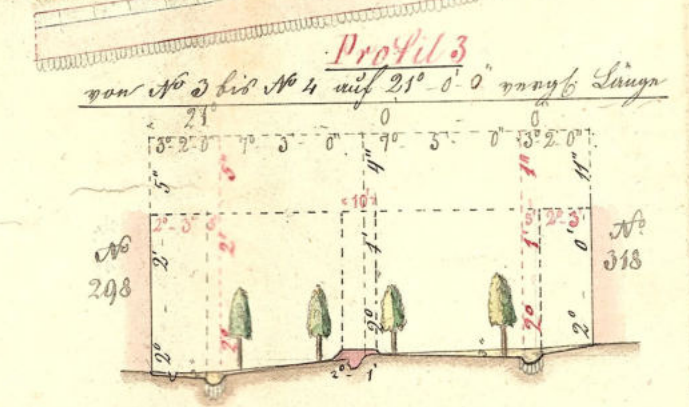 Profil 3
von No 3 bis No 4 auf 21° - 0' - 0" vergl. Länge
21° 0 0
3° 2 0 7° 3 0" 7° 5 0" 3° 2 0"
5" 5" 4" 1" 11"
< 10' >
2° 3' 3' 2° 3'
2' 2' 1' 1' 0'
No 298
No 318
2° 2° 2° 2° 2°
2° - 1'